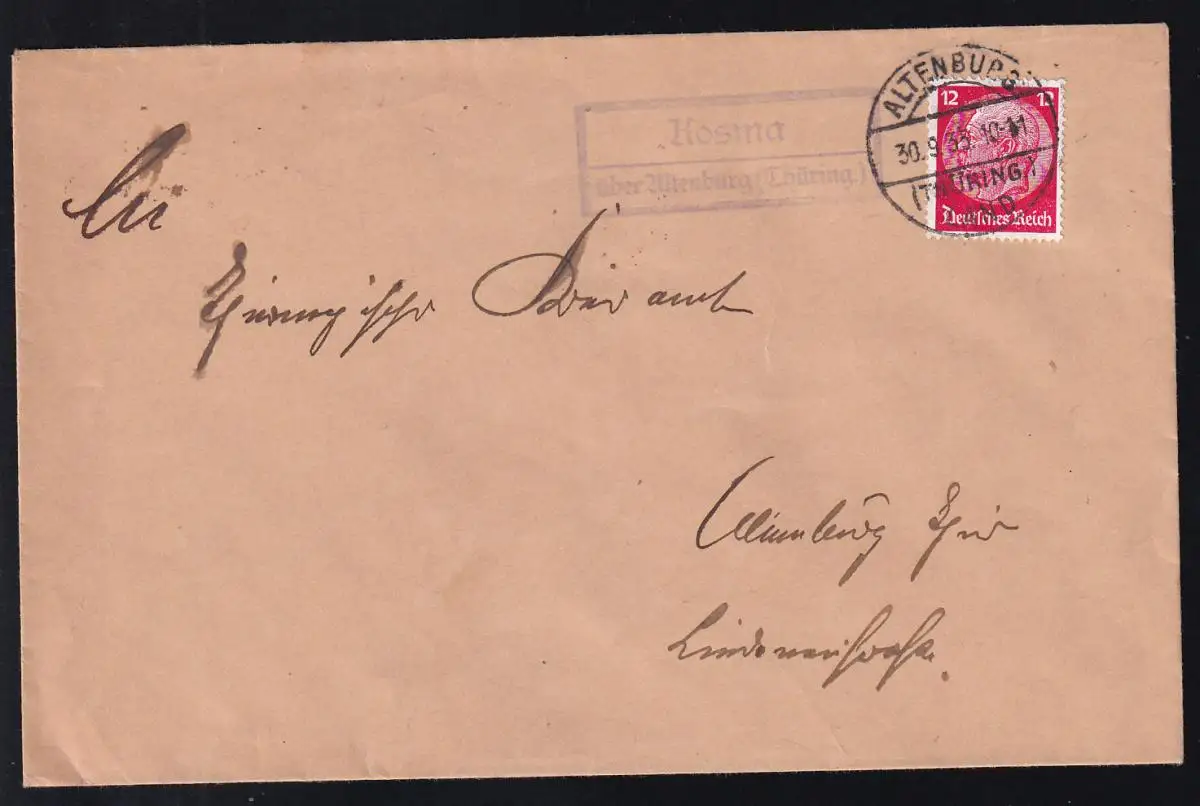 Kosma
über Altenburg (Thüring.)
ALTENBURG
30.9.35.10-11
(THÜRING.)
12 12
Deutsches Reich
An
Thüringische
Altenburg Thür